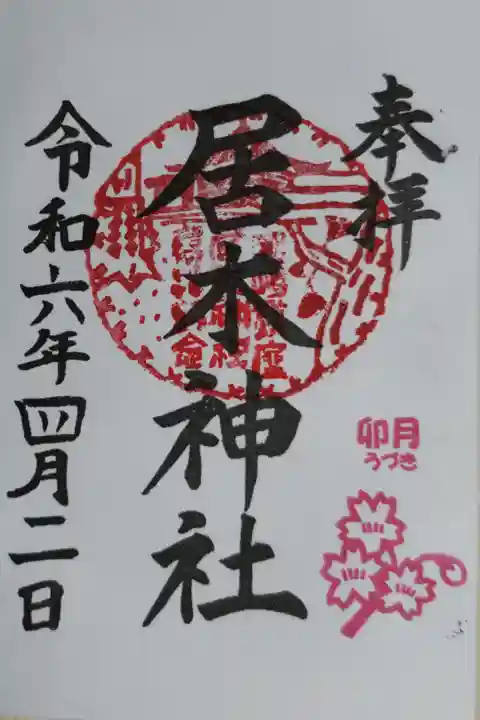 奉拝
居木神社
令和六年四月二日
卯月
うづき